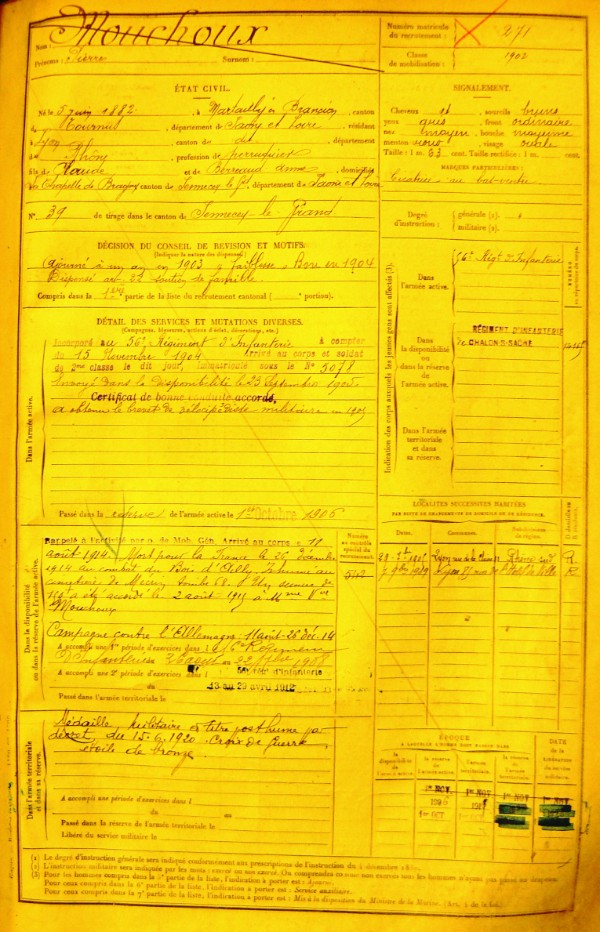 Nom : Mouchoux
Prénoms : Pierre Surnom :
Numéro matricule du recrutement : 271
Classe de mobilisation : 1902
ÉTAT CIVIL.
Né le 5 juin 1882, à Martailly les Brancion, canton
de Tournus, département de Saône et Loire, résidant
à Lyon canton de dt, département
du Rhône, profession de perruquier
fils de Claude et de Berreaud Anne, domiciliés
à La Chapelle de Bragny canton de Sennecey le Gd, département de Saône et Loire
N° 39 de tirage dans le canton de Sennecey-le-Grand
SIGNALEMENT.
Cheveux et sourcils bruns
yeux gris front ordinaire
nez moyen bouche moyenne
menton rond visage ovale
Taille : 1 m. 63 cent. Taille rectifiée : 1 m. cent.
MARQUES PARTICULIÈRES :
Cicatrice au bas-ventre
Degré d'instruction : générale (1). militaire (2).
DÉCISION DU CONSEIL DE REVISION ET MOTIFS.
(Indiquer la nature des dispenses.)
Ajourné à un an en 1903 faiblesse Bon en 1904
Dispensé art. 22 soutien de famille
Compris dans la 1ère partie de la liste du recrutement cantonal ( portion).
DÉTAIL DES SERVICES ET MUTATIONS DIVERSES.
(Campagnes, blessures, actions d'éclat, décorations, etc.)
Incorporé au 56e Régiment d'Infanterie à compter
du 15 Novembre 1904. Arrivé au corps et soldat
de 2me classe le dit jour, Immatriculé sous le No 5078
Envoyé dans la disponibilité le 23 Septembre 1905.
Certificat de bonne conduite accordé.
a obtenu le brevet de vélocipédiste militaire en 1905
Dans l'armée active.
Passé dans la réserve de l'armée active le 1er Octobre 1906
Indication des corps auxquels les jeunes gens sont affectés (3).
Dans l'armée active.
56e Régt d'Infanterie
Dans la disponibilité ou dans la réserve de l'armée active.
RÉGIMENT D'INFANTERIE
de CHALON-S-SAÔNE
Dans l'armée territoriale et dans sa réserve.
LOCALITÉS SUCCESSIVES HABITÉES
PAR SUITE DE CHANGEMENT DE DOMICILE OU DE RÉSIDENCE.
Dates. Communes. Subdivision de région.
Dans la disponibilité ou dans la réserve de l'armée active.
Rappelé à l'activité par o. de Mob. Gén. Arrivé au corps le 11
août 1914. Mort pour la France le 26 décembre
1914 au combat du Bois d'Ailly. Inhumé au
cimetière de Mécrin tombe 68. Un secours de
150f a été accordé le 2 août 1915 à Mme Vve
Mouchoux
Campagne contre l'Allemagne : 11 août - 26 déc. 14
A accompli une 1re période d'exercices dans le 56e Régiment
d'Infanterie
A accompli une 2e période d'exercices dans le 56e Rég. d'Infanterie
du 13 au 29 avril 1912
Passé dans l'armée territoriale le
Dans l'armée territoriale et dans sa réserve.
Médaille militaire à titre posthume
décret du 15.6.1920. Croix de Guerre
étoile de bronze
A accompli une période d'exercices dans l
du au
Passé dans la réserve de l'armée territoriale le
Libéré du service militaire le
ÉPOQUE
À LAQUELLE L'HOMME DOIT PASSER DANS
la disponibilité de l'armée active.
la réserve de l'armée active.
l'armée territoriale.
la réserve de l'armée territoriale.
DATE de la libération du service militaire.
(1) Le degré d'instruction générale sera indiqué conformément aux prescriptions de l'instruction du
(2) L'instruction militaire sera indiquée par les mots : exercé ou non exercé.
(3) Pour les hommes compris dans la partie de la liste, l'indication à porter est : Ajourné.
Pour ceux compris dans la 6e partie de la liste, l'indication à porter est : Service auxiliaire.
Pour ceux compris dans la 7e partie de la liste, l'indication à porter est : Mis à la disposition du Ministre de la Marine.